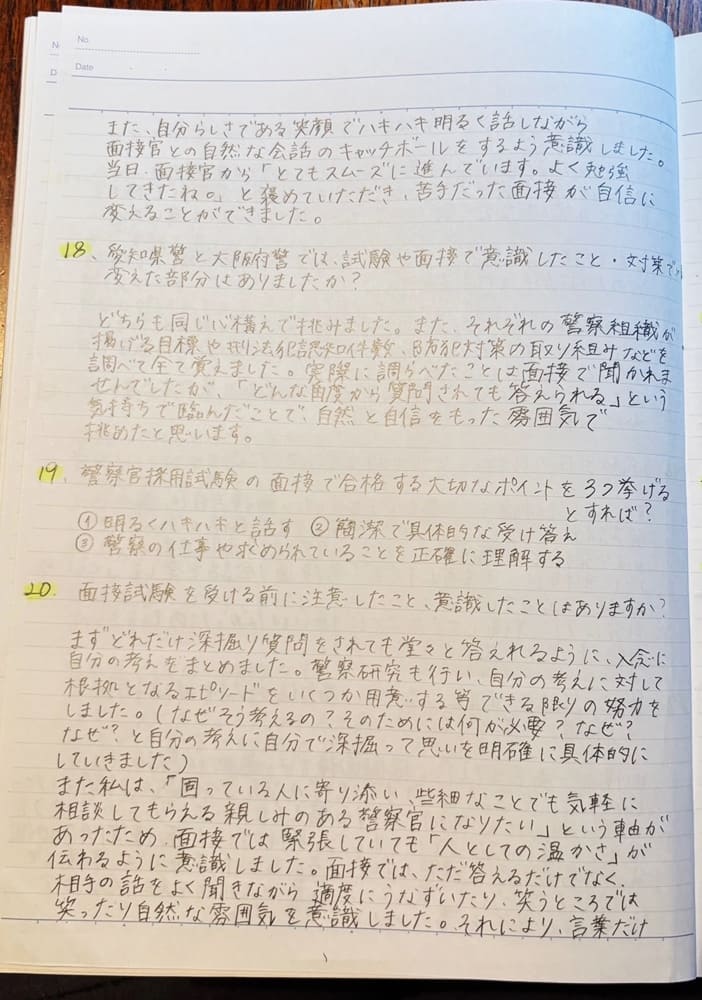 No.
Date
また、自分らしさである笑顔でハキハキ明るく話しながら
面接官との自然な会話のキャッチボールをするよう意識しました。
当日、面接官から「とてもスムーズに進んでいます。よく勉強
してきたね。」と褒めていただき、苦手だった面接が自信に
変えることができました。
18、愛知県警と大阪府警では、試験や面接で意識したこと・対策で
変えた部分はありましたか?
どちらも同じ心構えで挑みました。また、それぞれの警察組織が
掲げる目標や刑法犯認知件数、防犯対策の取り組みなどを
調べて全て覚えました。実際に調らべたことは面接で聞かれま
せんでしたが、「どんな角度から質問されても答えられる」という
気持ちで臨んだことで、自然と自信をもった雰囲気で
挑めたと思います。
19、警察官採用試験の面接で合格する大切なポイントを3つ挙げる
とすれば?
①明るくハキハキと話す ②簡潔で具体的な受け答え
③警察の仕事や求められていることを正確に理解する
20. 面接試験を受ける前に注意したこと、意識したことはありますか?
まずどれだけ深掘り質問をされても堂々と答えれるように、入念に
自分の考えをまとめました。警察研究も行い、自分の考えに対して
根拠となるエピソードをいくつか用意する等できる限りの努力を
しました。(なぜそう考えるの?そのためには何が必要?なぜ?
なぜ?と自分の考えに自分で深掘って思いを明確に具体的に
していきました)
また私は、「困っている人に寄り添い、些細なことでも気軽に
相談してもらえる親しみのある警察官になりたい」という軸が
あったため、面接では緊張していても「人としての温かさ」が
伝わるように意識しました。面接では、ただ答えるだけでなく、
相手の話をよく聞きながら適度にうなずいたり、笑うところでは
笑ったり自然な雰囲気を意識しました。それにより、言葉だけ